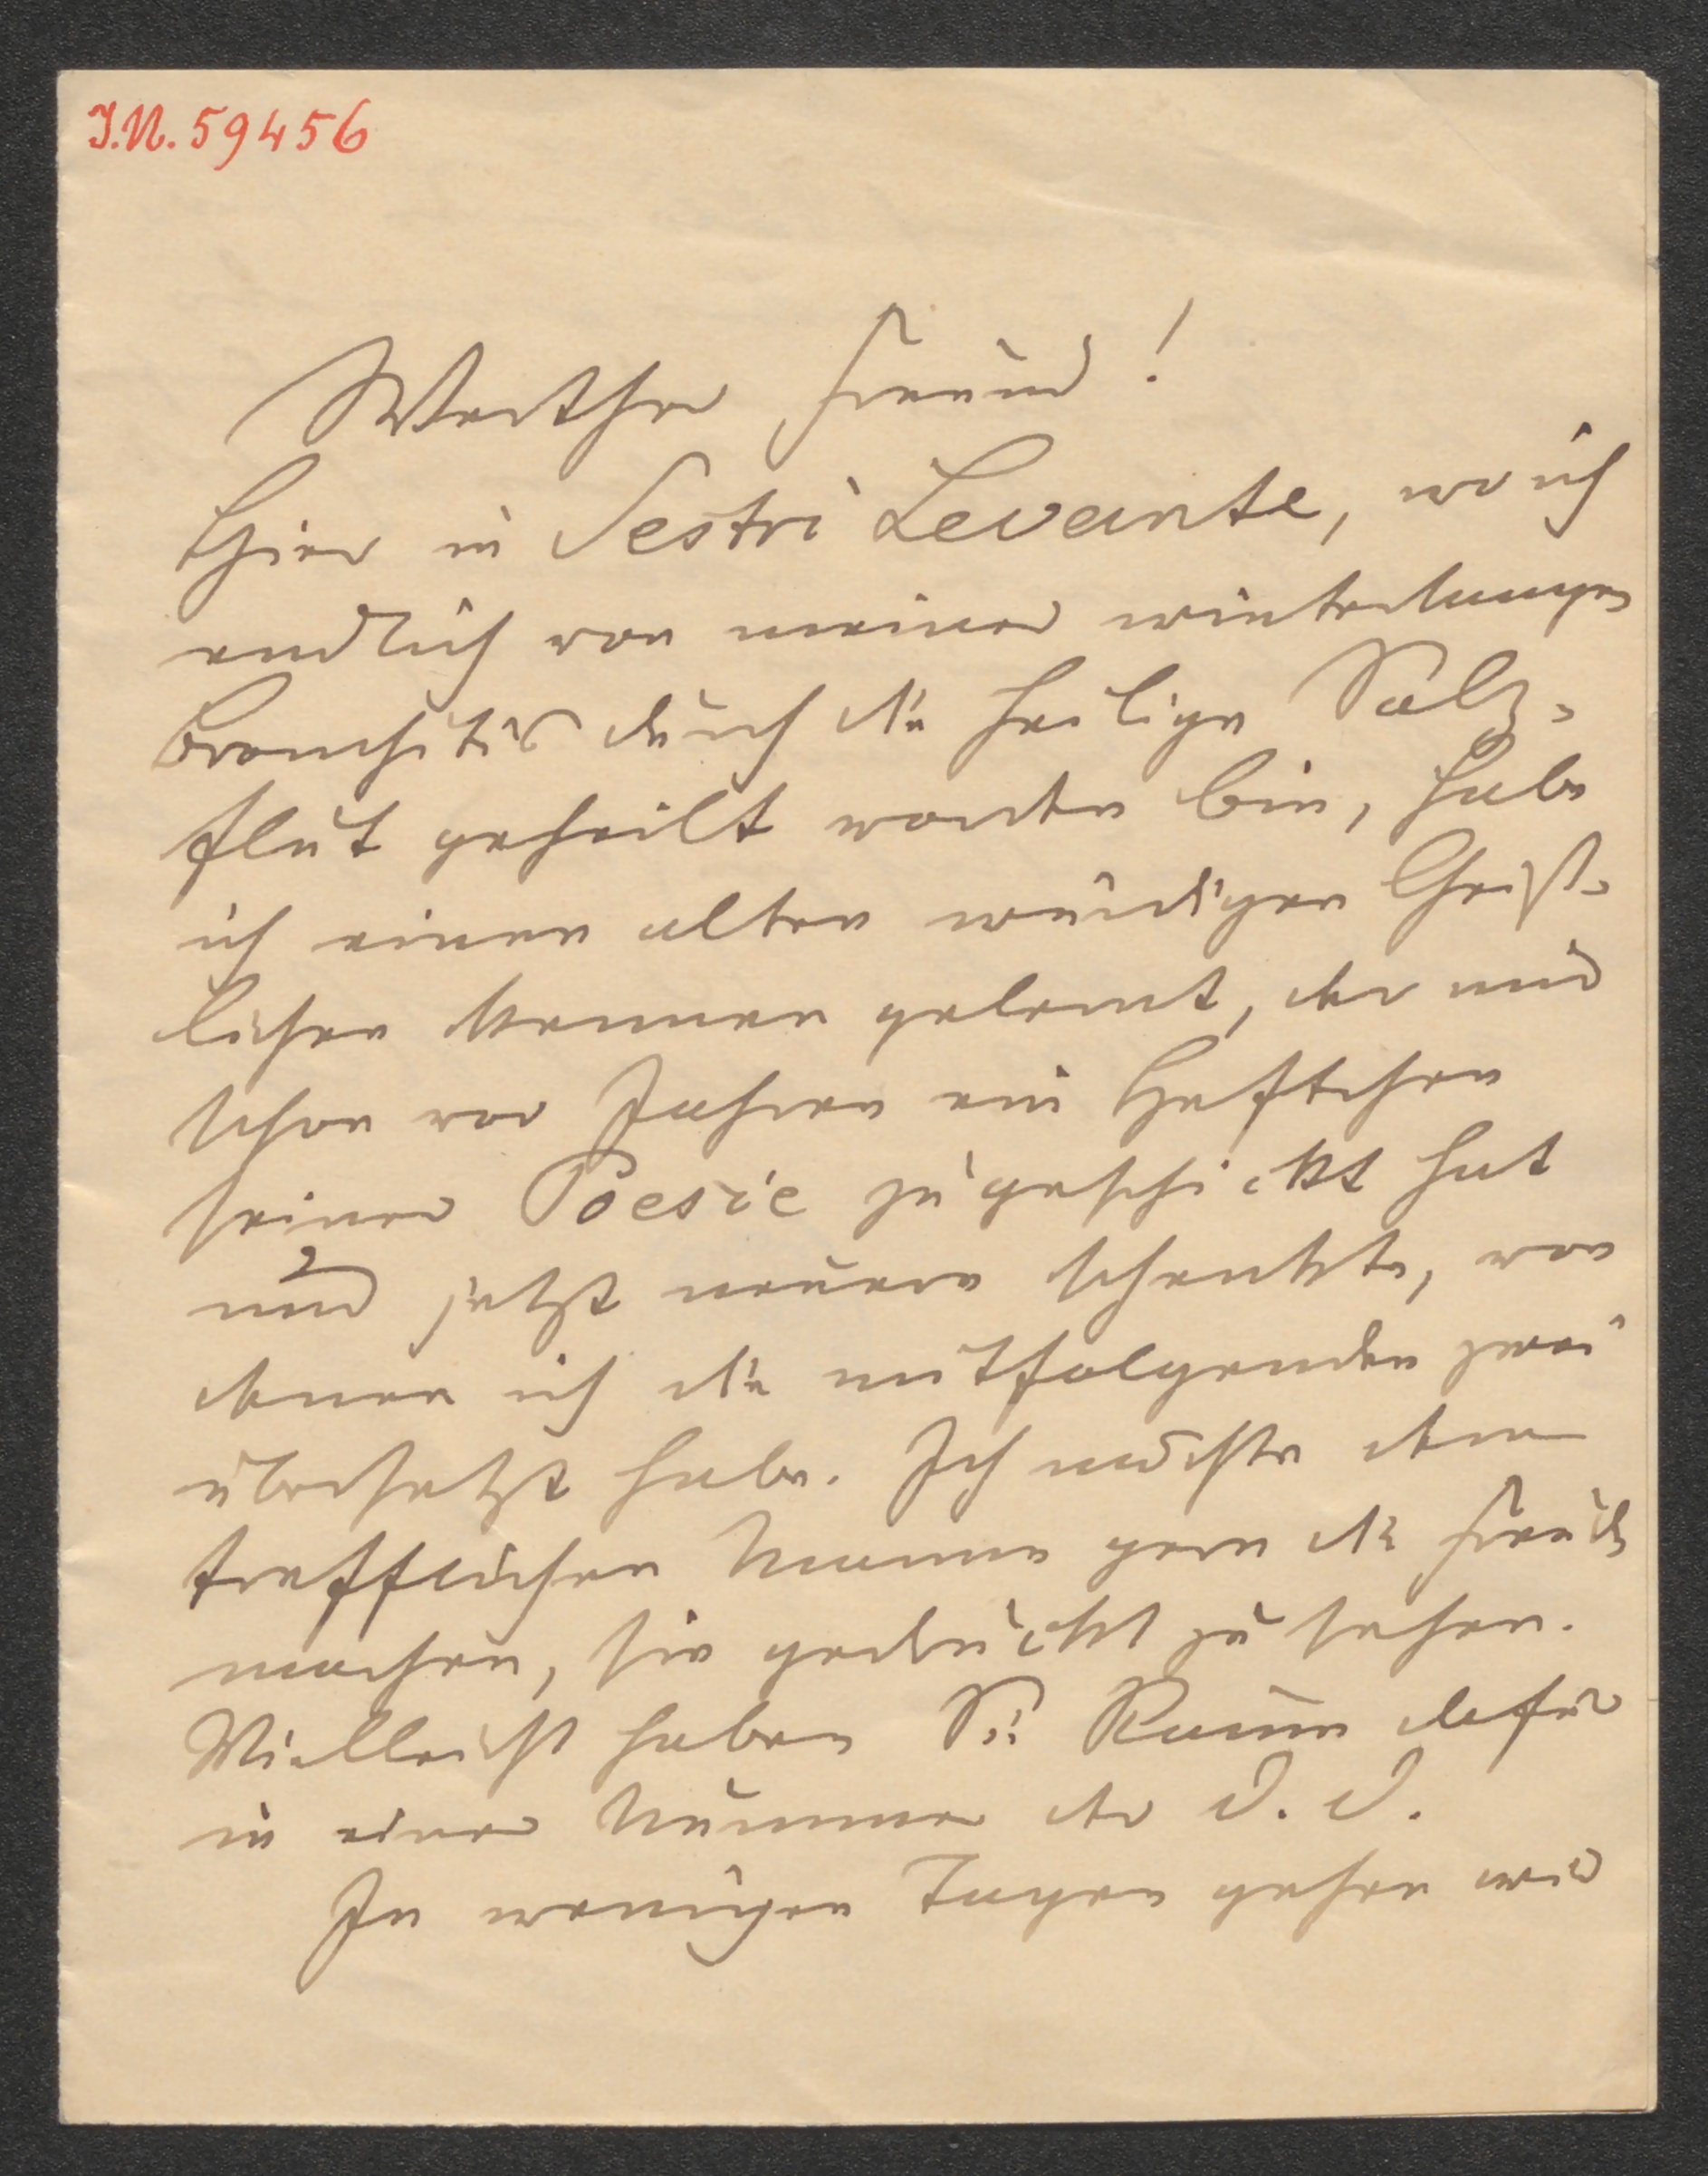 J.N. 59456
Werther Freund!
Hier in Sestri Levante, wo ich
endlich von meiner winterlangen
Bronchitis durch die heilige Salz-
flut geheilt worden bin, habe
ich einen alten würdigen Geist-
lichen kennen gelernt, der mir
schon vor Jahren ein Heftchen
seiner Poesie zugeschickt hat
und jetzt neuere schenkte, von
denen ich die mitfolgenden zwei
übersetzt habe. Ich möchte dem
trefflichen Manne gern die Freude
machen, sie gedruckt zu sehen.
Vielleicht haben Sie Raum dafür
in einer Nummer der D. D.
In wenigen Tagen gehen wir